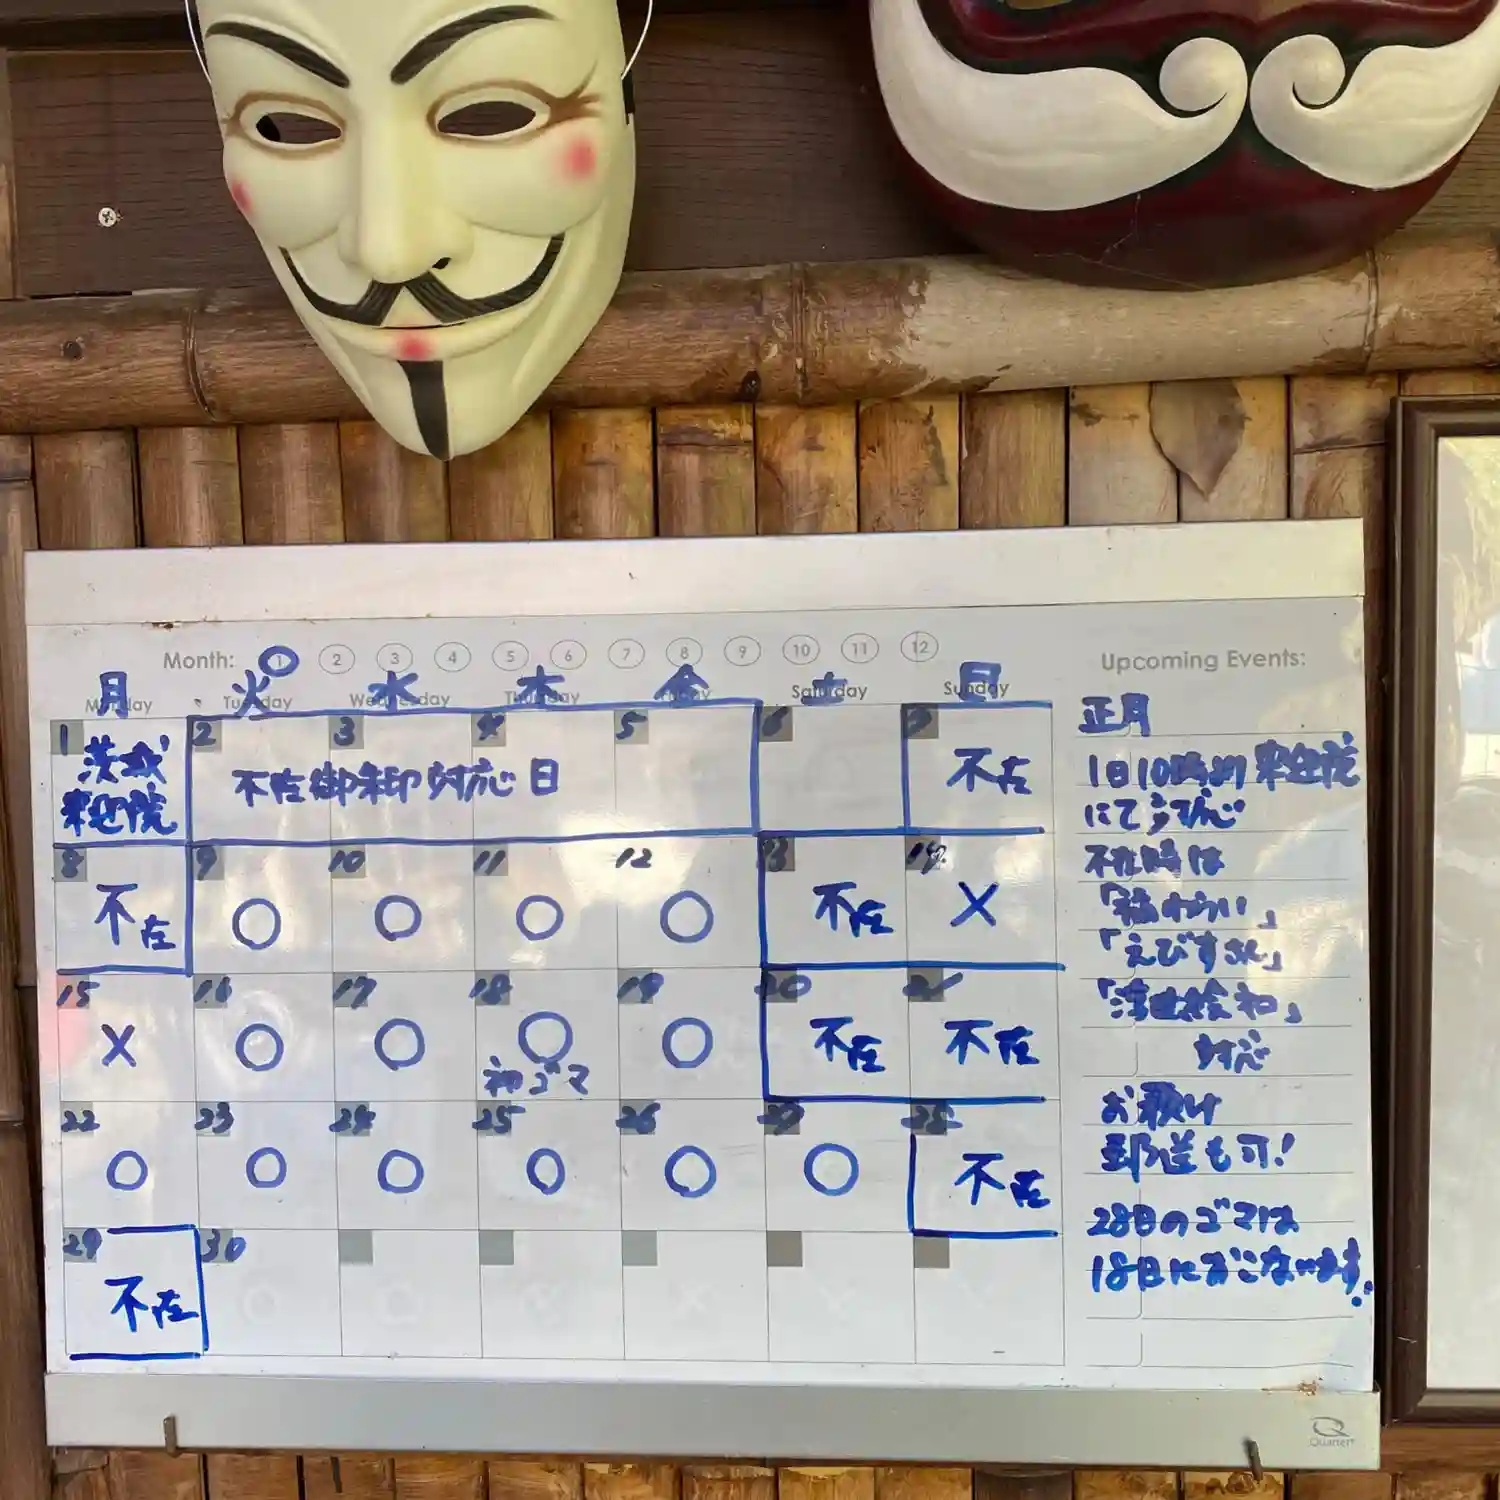 Month: 1 2 3 4 5 6 7 8 9 10 11 12
Upcoming Events:
月 火 水 木 金 土 日
Monday Tuesday Wednesday Thursday Friday Saturday Sunday
1 2 3 4 5 6 7
茨城
来迎院
不在御朱印対応日
不在
8 9 10 11 12 13 14
不在 ○ ○ ○ ○ 不在 X
15 16 17 18 19 20 21
X ○ ○ ○ ○ 不在 不在
初ゴマ
22 23 24 25 26 27 28
○ ○ ○ ○ ○ ○ 不在
29 30
不在
正月
1日10時 来迎院
にて対応
不在時は
「えびすさん」
「浮世絵和」
対応
お願い
郵送も可!
28日のゴマは
18日におこないます!
Quartet